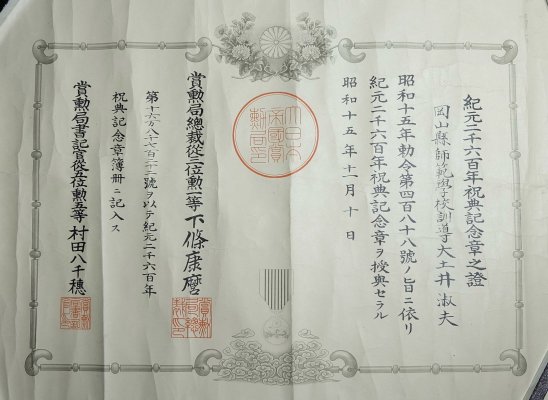 紀元二千六百年祝典記念章之證
岡山縣師範學校訓導大土井淑夫
昭和十五年勅令第四百八十八號ノ旨ニ依リ
紀元二千六百年祝典記念章ヲ授與セラル
昭和十五年十一月十日
大日本
帝國賞
勲局印
賞勲局總裁從三位勲一等下條康麿
第十六万八千七百二十二號ヲ以テ紀元二千六百年
祝典記念章簿册ニ記入ス
賞勲局書記官從五位勲五等村田八千穗